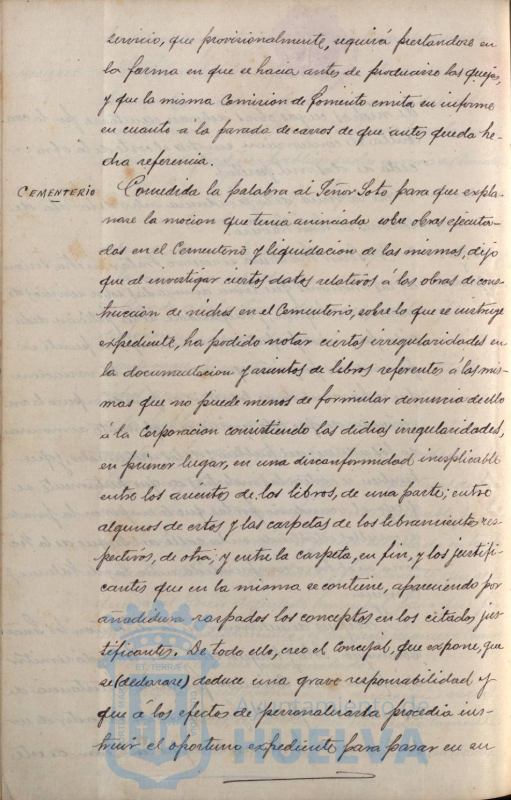 servicio, que provisionalmente, seguirá prestandose en
la forma en que se hacia antes de producirse las quejas,
y que la misma Comision de Fomento emita su informe
en cuanto á la parada de carros de que antes queda he-
cha referencia.
CEMENTERIO
Concedida la palabra al Señor Soto para que expla-
nare la mocion que tenia anunciada sobre obras ejecuta-
das en el Cementerio y liquidacion de las mismas, dijo
que al investigar ciertos datos relativos á las obras de cons-
truccion de nichos en el Cementerio, sobre lo que se instruye
expediente, ha podido notar ciertas irregularidades en
la documentacion y asientos de libros referentes á las mis-
mas que no puede menos de formular denuncia de ello
á la Corporacion consistiendo las dichas irregularidades,
en primer lugar, en una disconformidad inexplicable
entre los asientos de los libros, de una parte; entre
algunos de estos y las carpetas de los libramientos res-
pectivos, de otra, y entre la carpeta, en fin, y los justifi-
cantes que en la misma se contiene, apareciendo por
añadidura raspados los conceptos en los citados jus-
tificantes. De todo ello, cree el Concejal, que expone, que
se (declarase) deduce una grave responsabilidad y
que á los efectos de personalizarla procedia ins-
truir el oportuno expediente para pasar en su
Ayuntamiento de
HUELVA